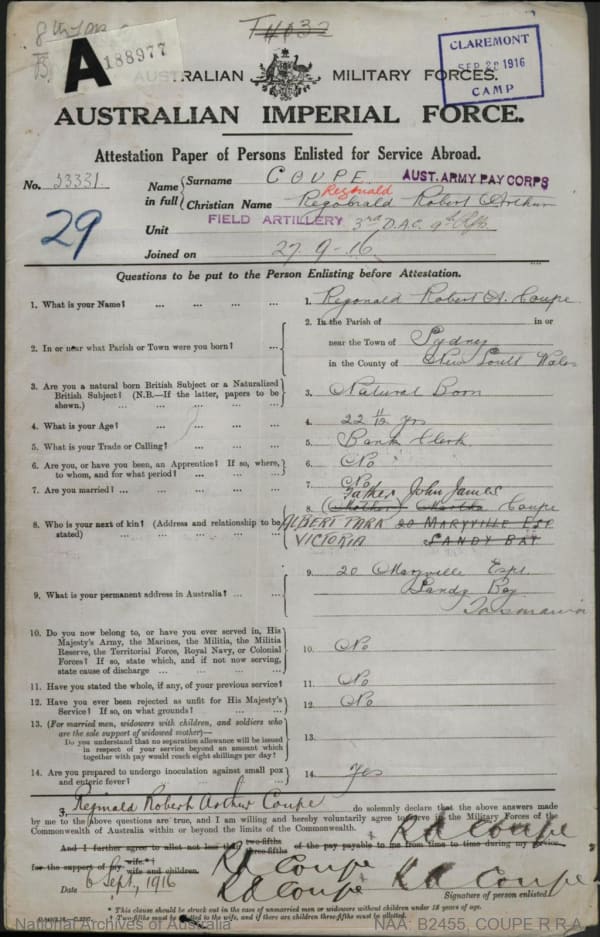 A
188977
CLAREMONT
SEP 28 1916
CAMP
AUSTRALIAN MILITARY FORCES.
AUSTRALIAN IMPERIAL FORCE.
Attestation Paper of Persons Enlisted for Service Abroad.
No. 33331. Name in full { Surname COUPE AUST. ARMY PAY CORPS
Reginald
Christian Name Robert Arthur
29
Unit FIELD ARTILLERY 3rd D.A.C.
Joined on 27-9-16
Questions to be put to the Person Enlisting before Attestation.
1. What is your Name? ... ... ... ... 1. Reginald Robert A. Coupe
2. In or near what Parish or Town were you born? ... 2. In the Parish of in or
near the Town of Sydney
in the County of New South Wales
3. Are you a natural born British Subject or a Naturalized
British Subject? (N.B.—If the latter, papers to be
shown.) ... ... ... ... 3. Natural Born
4. What is your Age? ... ... ... 4. 22 yrs
5. What is your Trade or Calling? ... ... ... 5. Bank Clerk
6. Are you, or have you been, an Apprentice? If so, where,
to whom, and for what period? ... ... 6. No
7. Are you married? ... ... ... ... 7. No
8. Who is your next of kin? (Address and relationship to be
stated) ... ... ... 8. Father John James
(Mother) Martha Coupe
ALBERT PARK 20 MARYVILLE ESP
VICTORIA SANDY BAY
9. What is your permanent address in Australia? ... ... 9. 20 Maryville Espl
Sandy Bay
Tasmania
10. Do you now belong to, or have you ever served in, His
Majesty's Army, the Marines, the Militia, the Militia
Reserve, the Territorial Force, Royal Navy, or Colonial
Forces? If so, state which, and if not now serving,
state cause of discharge ... ... ... 10. No
11. Have you stated the whole, if any, of your previous service? 11. No
12. Have you ever been rejected as unfit for His Majesty's
Service? If so, on what grounds? ... ... 12. No
13. (For married men, widowers with children, and soldiers who
are the sole support of widowed mother)—
Do you understand that no separation allowance will be issued
in respect of your service beyond an amount which
together with pay would reach eight shillings per day? 13.
14. Are you prepared to undergo inoculation against small pox
and enteric fever? ... ... ... 14. Yes
I, Reginald Robert Arthur Coupe do solemnly declare that the above answers made
by me to the above questions are true, and I am willing and hereby voluntarily agree to serve in the Military Forces of the
Commonwealth of Australia within or beyond the limits of the Commonwealth.
RA Coupe
And I further agree to allot not less than two-fifths three-fifths of the pay payable to me from time to time during my service
for the support of my wife.* wife and children.
RA Coupe
Date 6 Sept, 1916 RA Coupe RA Coupe
Signature of person enlisted.
* This clause should be struck out in the case of unmarried men or widowers without children under 18 years of age.
† Two-fifths must be allotted to the wife, and if there are children three-fifths must be allotted.
National Archives of Australia NAA: B2455, COUPE R R A